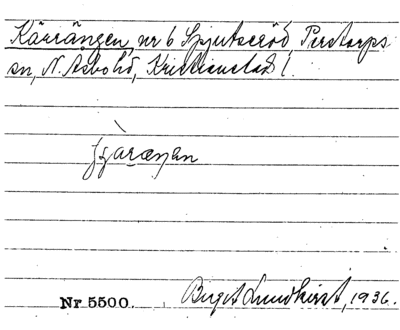 Kärrängen, nr 6 Spjutseröd, Perstorps
sn, N. Åsbo hd, Kristianstads l.
Nr 5500.
Birgit Lundkvist, 1936.